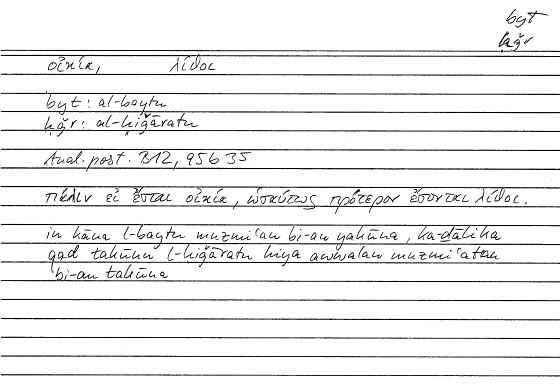 byt
ḥǧr
οἰκία, λίθοι
byt : al-baytu
ḥǧr : al-ḥiǧāratu
Anal. post. B12, 95b35
πάλιν εἰ ἔσται οἰκία, ὡσαύτως πρότερον ἔσονται λίθοι.
in kāna l-baytu muzmiʿan bi-an yakūna, ka-ḏālika
qad takūnu l-ḥiǧāratu hiya awwalan muzmiʿatan
bi-an takūna